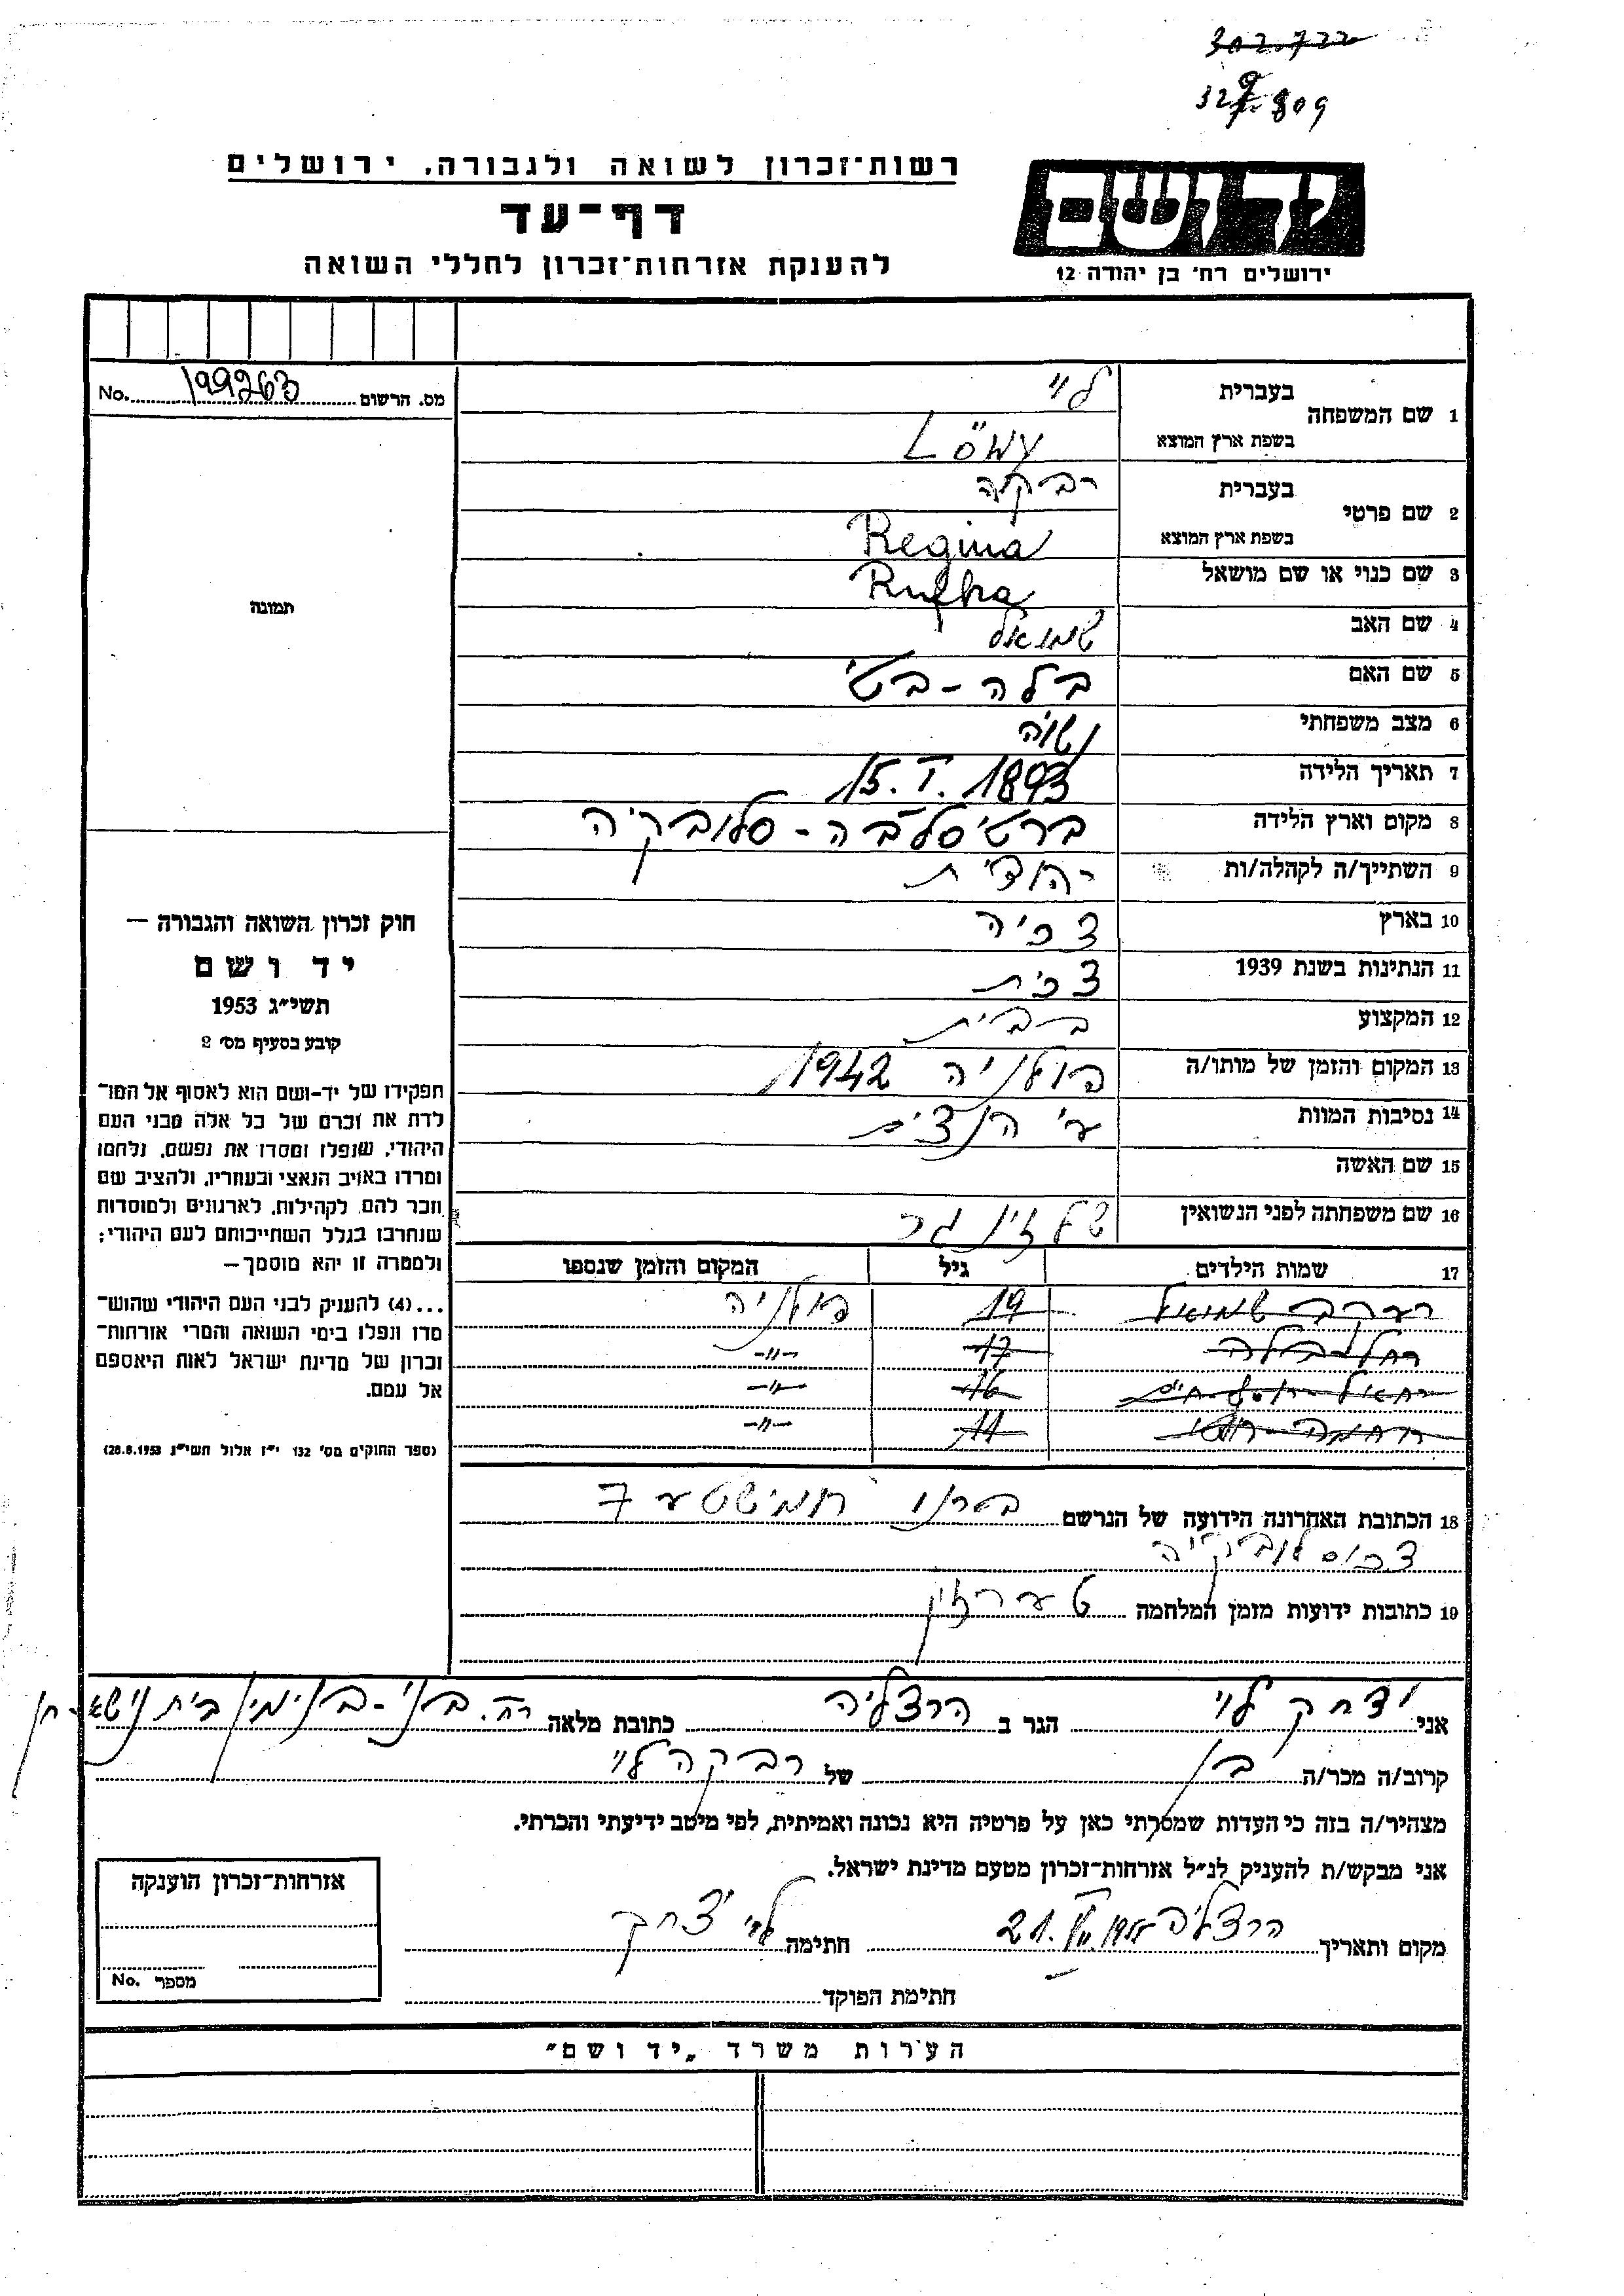 302.722
329.809
ידושם
רשות־זכרון לשואה ולגבורה, ירושלים
דף־עד
להענקת אזרחות־זכרון לחללי השואה
ירושלים רח׳ בן יהודה 12
מס. הרשום 199263 No.
1 שם המשפחה
בעברית לוי
בשפת ארץ המוצא Löwy
2 שם פרטי
בעברית רבקה
בשפת ארץ המוצא Regina
3 שם כנוי או שם מושאל Rufka
תמונה
4 שם האב שמואל
5 שם האם בלה - בטי
6 מצב משפחתי נשוי
7 תאריך הלידה 15. I. 1893
8 מקום וארץ הלידה ברטיסלבה - סלובקיה
9 השתייך/ה לקהלה/ות יהודית
10 בארץ צכיה
11 הנתינות בשנת 1939 צכית
12 המקצוע
13 המקום והזמן של מותו/ה פולניה 1942
14 נסיבות המוות ע״י הנצים
15 שם האשה
16 שם משפחתה לפני הנשואין שלזינגר
חוק זכרון השואה והגבורה —
יד ושם
תשי״ג 1953
קובע בסעיף מס׳ 2
תפקידו של יד-ושם הוא לאסוף אל המו־
לדת את זכרם של כל אלה מבני העם
היהודי, שנפלו ומסרו את נפשם, נלחמו
ומרדו באויב הנאצי ובעוזריו, ולהציב שם
וזכר להם, לקהילות, לארגונים ולמוסדות
שנחרבו בגלל השתייכותם לעם היהודי;
ולמטרה זו יהא מוסמך —
...(4) להעניק לבני העם היהודי שהוש־
מדו ונפלו בימי השואה והמרי אזרחות־
זכרון של מדינת ישראל לאות היאספם
אל עמם.
(ספר החוקים מס׳ 132 י״ז אלול תשי״ג 28.8.1953)
17 שמות הילדים גיל המקום והזמן שנספו
שמואל 19 פולניה
בלה 17 -״-
16 -״-
נחמה 11 -״-
18 הכתובת האחרונה הידועה של הנרשם ברנו 7
צכוסלובקיה
19 כתובות ידועות מזמן המלחמה טערזין
אני יצחק לוי הגר ב הרצליה כתובת מלאה רח. בני-בנימין בית
קרוב/ה מכר/ה בן של רבקה לוי
מצהיר/ה בזה כי העדות שמסרתי כאן על פרטיה היא נכונה ואמיתית, לפי מיטב ידיעתי והכרתי.
אני מבקש/ת להעניק לנ״ל אזרחות-זכרון מטעם מדינת ישראל.
מקום ותאריך הרצליה 21. חתימה לוי יצחק
חתימת הפוקד
אזרחות־זכרון הוענקה
מספר No.
הערות משרד „יד ושם״